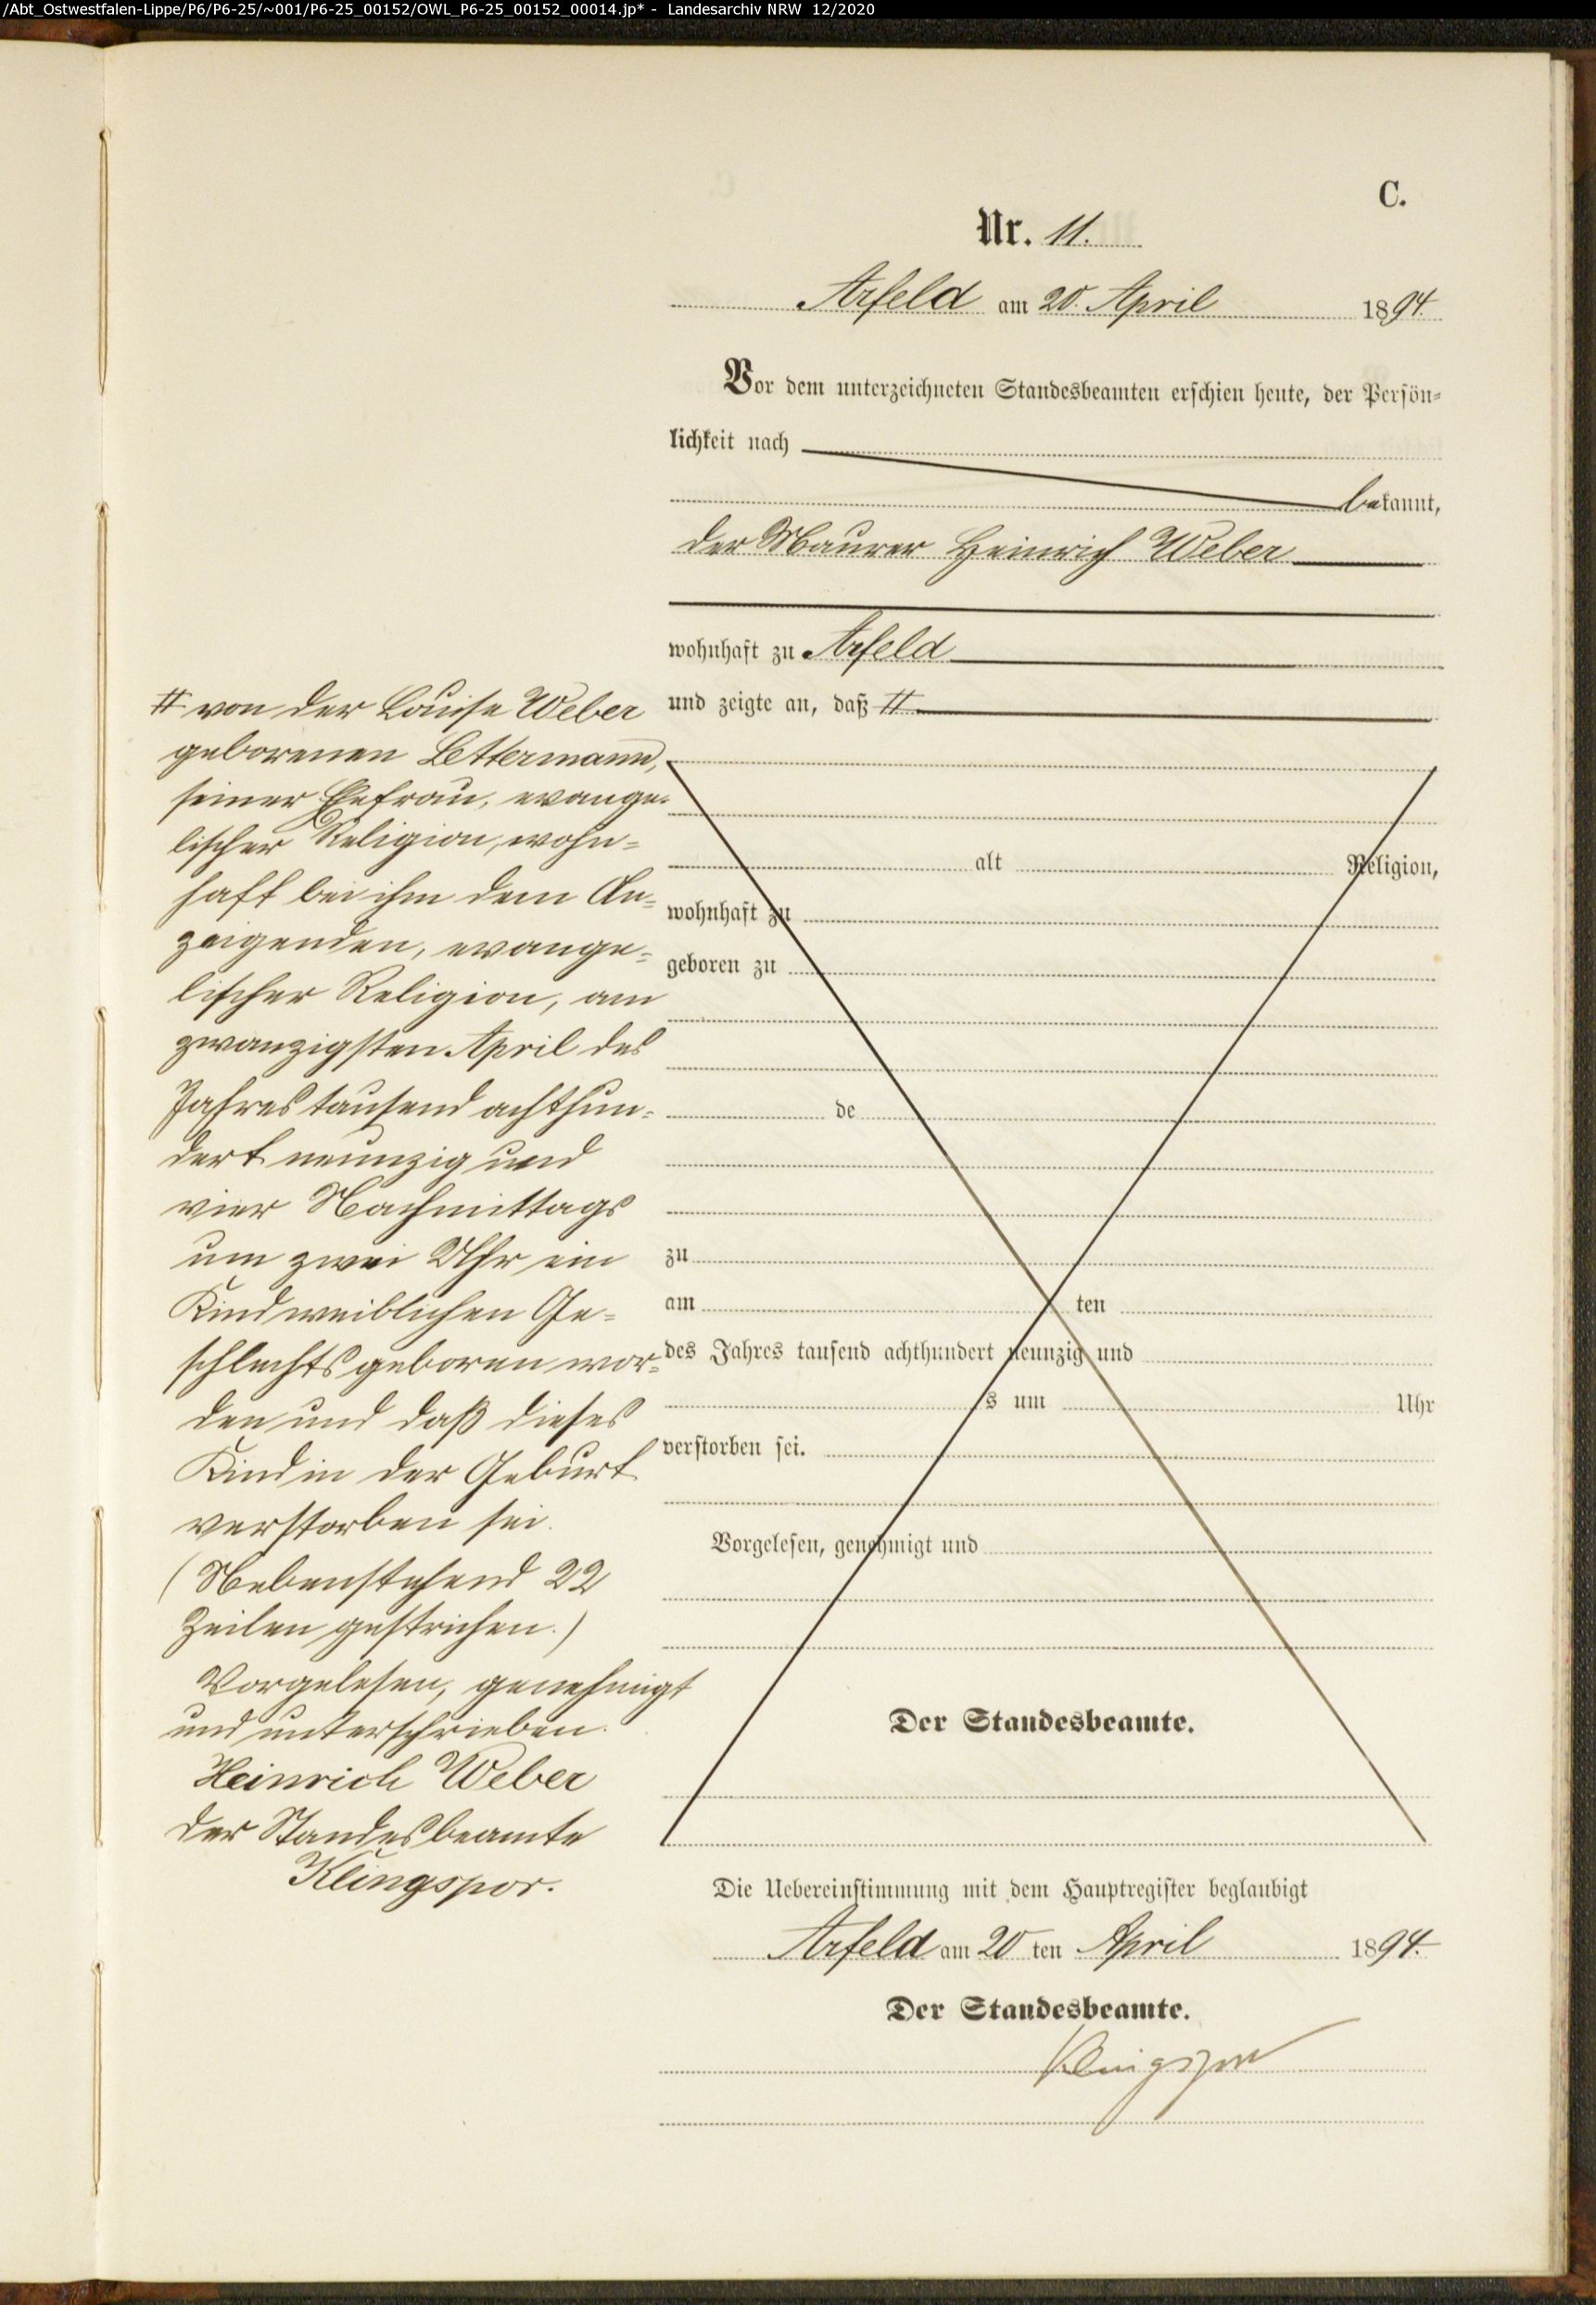 /Abt_Ostwestfalen-Lippe/P6/P6-25/~001/P6-25_00152/OWL_P6-25_00152_00014.jp* - Landesarchiv NRW 12/2020
C.
Nr. 11.
Arfeld am 20. April 1894.
Vor dem unterzeichneten Standesbeamten erschien heute, der Persön-
lichkeit nach
bekannt,
der Maurer Heinrich Weber
wohnhaft zu Arfeld
und zeigte an, daß #
# von der Louise Weber
geborenen Lettermann,
seiner Ehefrau, evange-
lischer Religion, wohn-
haft bei ihm dem An-
zeigenden, evange-
lischer Religion, am
zwanzigsten April des
Jahres tausend achthun-
dert neunzig und
vier Nachmittags
um zwei Uhr ein
Kind weiblichen Ge-
schlechts geboren wor-
den und daß dieses
Kind in der Geburt
verstorben sei.
(Nebenstehend 22
Zeilen gestrichen.)
Vorgelesen, genehmigt
und unterschrieben.
Heinrich Weber
Der Standesbeamte
Klingspor.
alt Religion,
wohnhaft zu
geboren zu
de
zu
am ten
des Jahres tausend achthundert neunzig und
s um Uhr
verstorben sei.
Vorgelesen, genehmigt und
Der Standesbeamte.
Die Uebereinstimmung mit dem Hauptregister beglaubigt
Arfeld am 20 ten April 1894.
Der Standesbeamte.
Klingspor